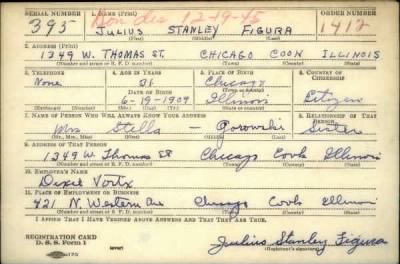 SERIAL NUMBER 1. NAME (Print) ORDER NUMBER
Hon dis 12-19-45
395 JULIUS STANLEY FIGURA 1412
2. ADDRESS (Print)
1349 W. THOMAS ST. CHICAGO COOK ILLINOIS
(Number and street or R. F. D. number) (Town) (County) (State)
3. TELEPHONE 4. AGE IN YEARS 5. PLACE OF BIRTH 6. COUNTRY OF CITIZENSHIP
None 31 Chicago
DATE OF BIRTH (Town or county)
6-19-1909 Illinois Citizen
7. NAME OF PERSON WHO WILL ALWAYS KNOW YOUR ADDRESS 8. RELATIONSHIP OF THAT PERSON
Mrs Stella — Gorowski Sister
(Mr., Mrs., Miss) (First) (Middle) (Last)
9. ADDRESS OF THAT PERSON
1349 W Thomas St Chicago Cook Illinois
(Number and street or R. F. D. number) (Town) (County) (State)
10. EMPLOYER'S NAME
Dixie Vortx
11. PLACE OF EMPLOYMENT OR BUSINESS
421 N. Western Ave Chicago Cook Illinois
(Number and street or R. F. D. number) (Town) (County) (State)
I AFFIRM THAT I HAVE VERIFIED ABOVE ANSWERS AND THAT THEY ARE TRUE.
REGISTRATION CARD
D. S. S. Form 1 Julius Stanley Figura
(Registrant's signature)